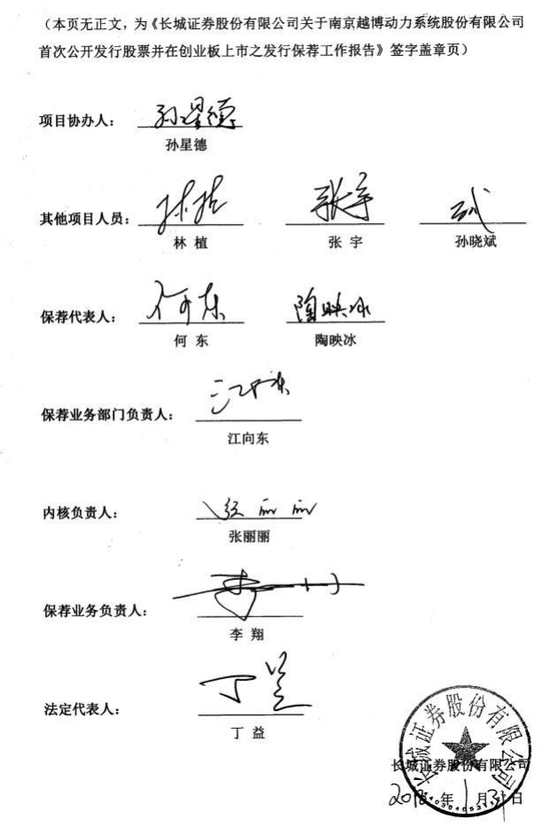 (本页无正文，为《长城证券股份有限公司关于南京越博动力系统股份有限公司
首次公开发行股票并在创业板上市之发行保荐工作报告》签字盖章页)
项目协办人： 孙星德
孙星德
其他项目人员： 林植 张宇
林 植 张 宇 孙晓斌
保荐代表人： 何东 陶映冰
何 东 陶映冰
保荐业务部门负责人：
江向东
内核负责人：
张丽丽
保荐业务负责人：
李 翔
法定代表人： 丁益
丁 益
长城证券股份有限公司
长城证券股份有限公司
2018年1月31日